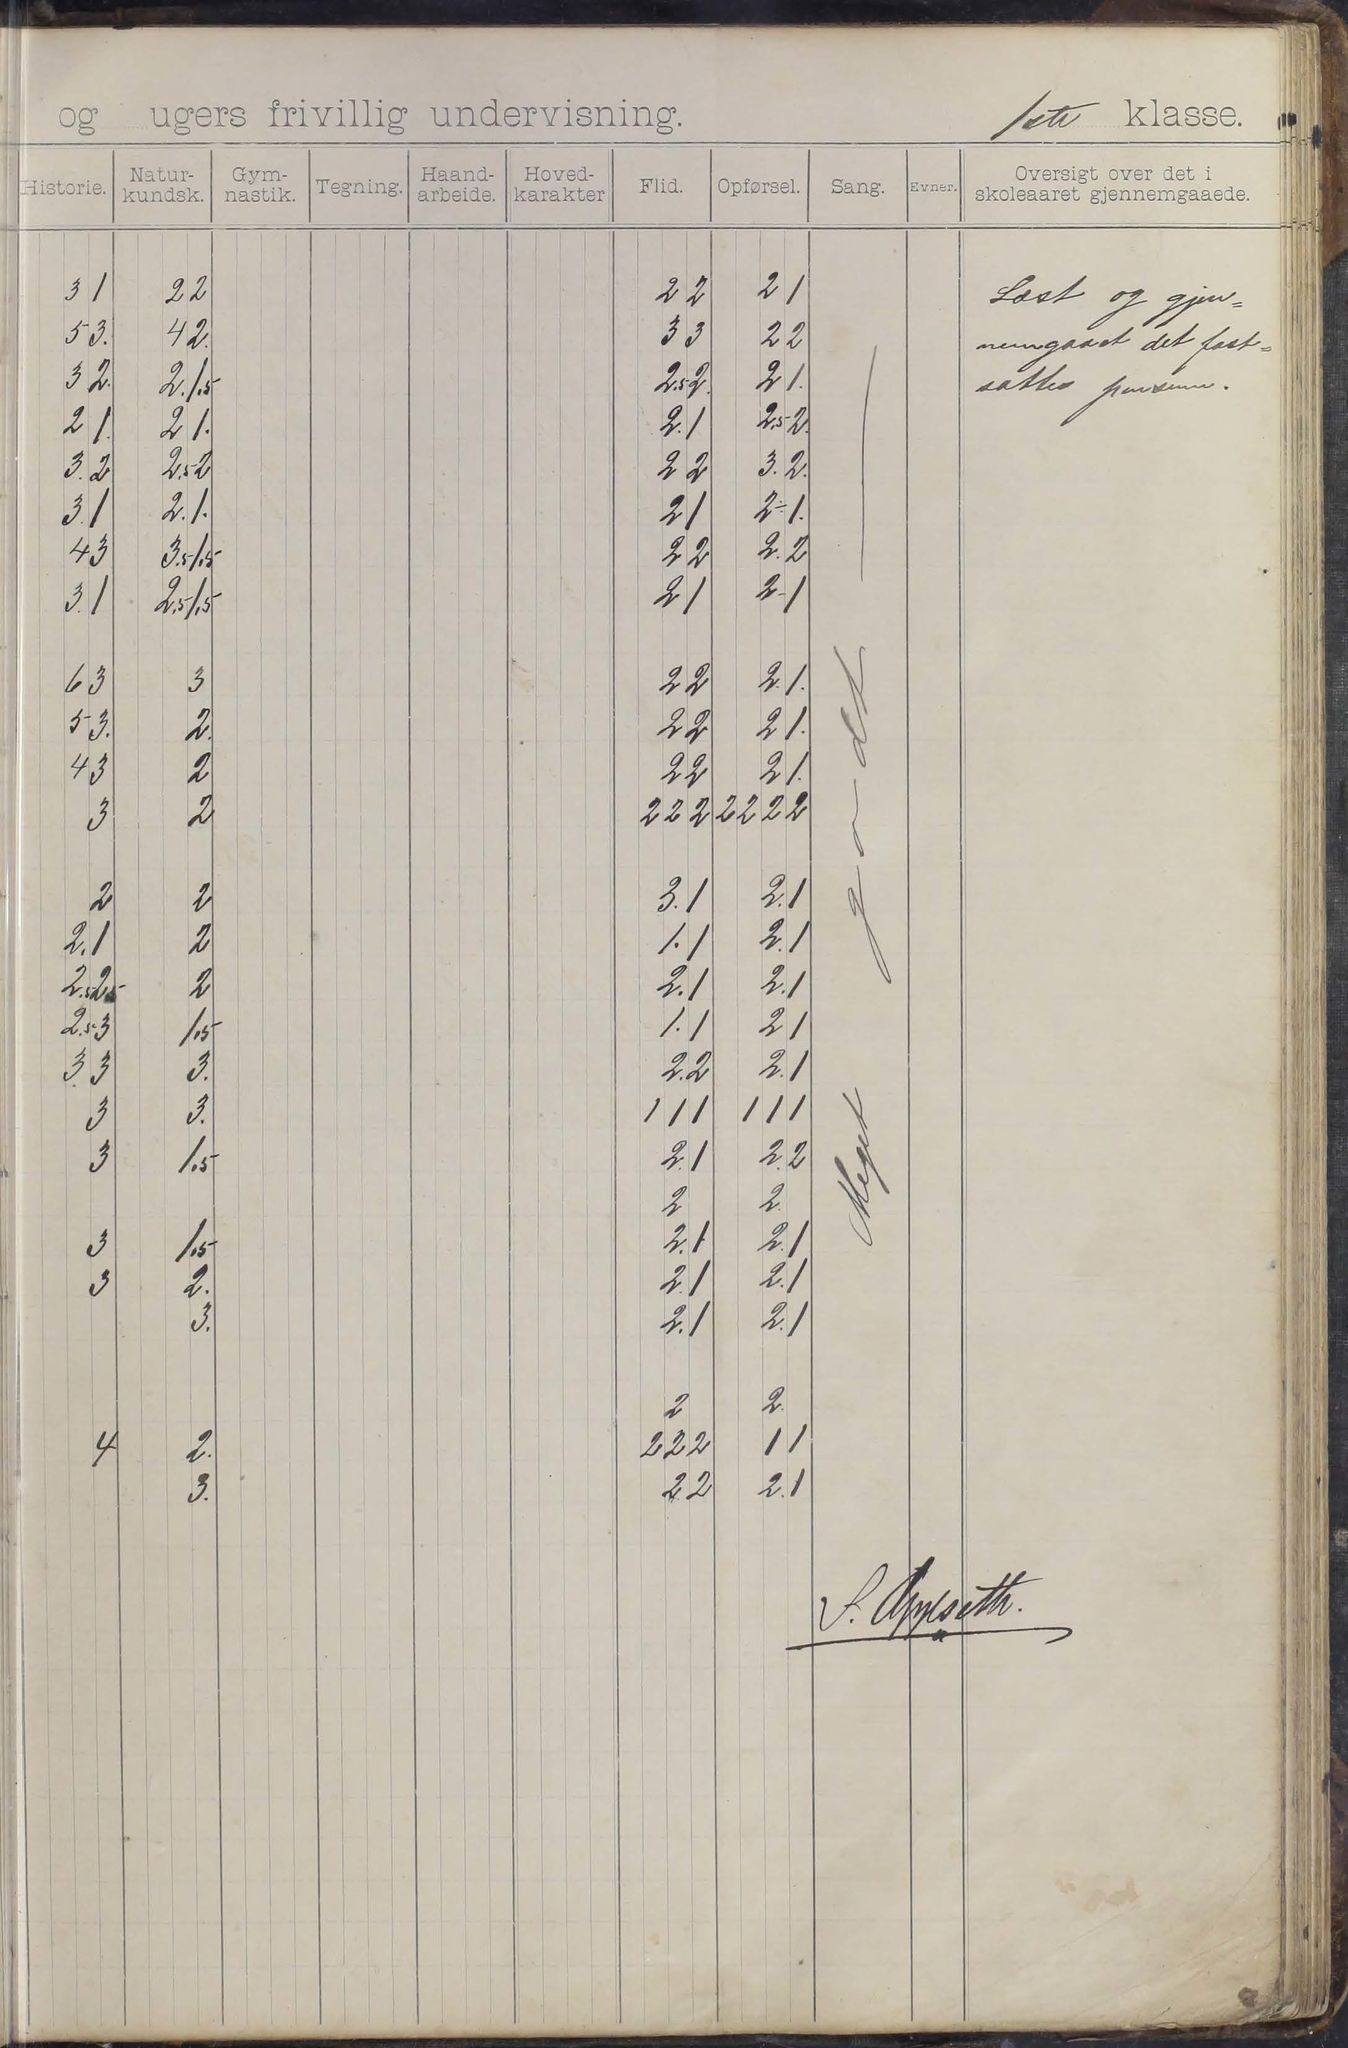 og ugers frivillig undervisning. 1ste klasse.
Historie. Natur-kundsk. Gym-nastik. Tegning. Haand-arbeide. Hoved-karakter Flid. Opførsel. Sang. Evner. Oversigt over det i skoleaaret gjennemgaaede.
3 1 2 2 2 2 2 1 Læst og gjen=
5 3. 4 2. 3 3 2 2 nemgaaet det fast=
3 2. 2. 1,5 2,5 2. 2 1. sattes pensum.
2 1. 2 1. 2.1 2,5 2.
3. 2 2,5 2 2 2 3. 2.
3.1 2.1. 2 1 2 1.
4 3 3,5 1,5 2 2 2. 2
3.1 2,5 1,5 2 1 2 1
6 3 3 2 2 2.1.
5 3. 2. 2 2 2 1.
4 3 2 2 2 2 1.
3 2 2 2 2 2 2 2 2
2 2 3.1 2.1
2.1 2 1.1 2.1
2,5 2,5 2 2.1 2.1
2,5 3 1,5 1.1 2 1
3. 3 3. 2.2 2.1
3 3. 1 1 1 1 1 1
3 1,5 2.1 2.2
2 2.
3 1,5 2.1 2.1
3 2. 2.1 2.1
3. 2.1 2.1
2 2.
4 2. 2 2 2 1 1
3. 2 2 2.1
Meget godt